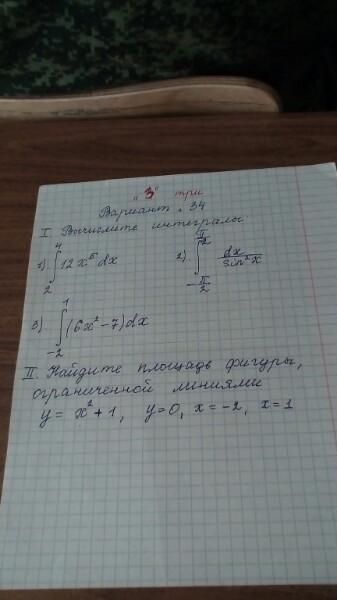 "3" три
Вариант 34
I Вычислите интегралы
1) ∫₂⁴ 12x⁵dx 2) ∫_{-π/2}^{π/2} dx/sin²x
3) ∫₋₂¹ (6x²-7)dx
II Найдите площадь фигуры,
ограниченной линиями
y = x²+1, y=0, x=-2, x=1